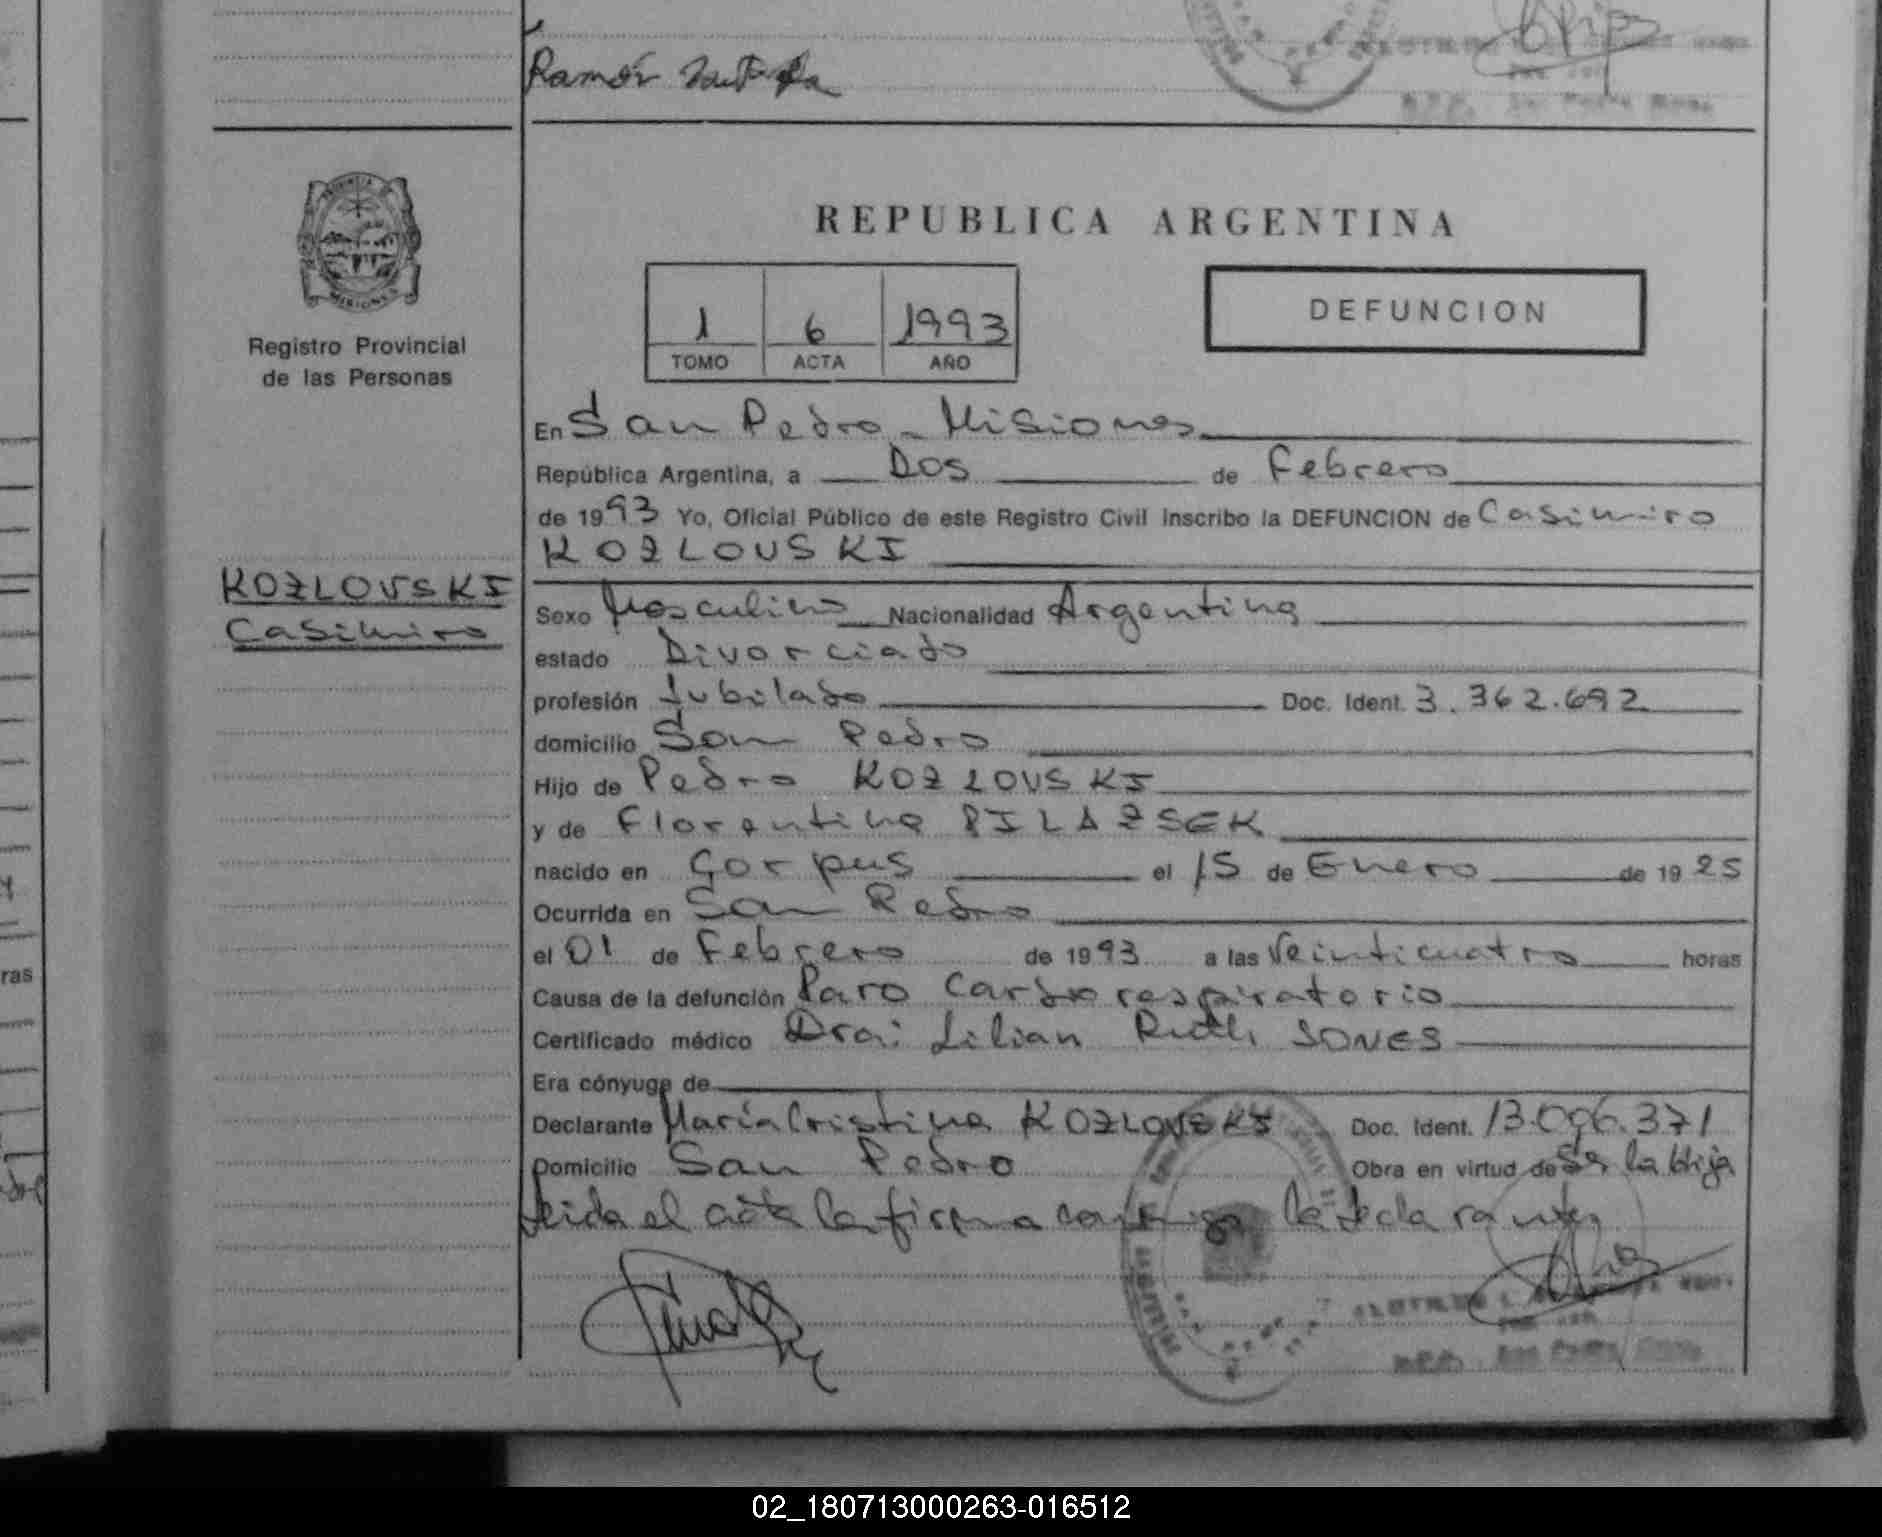 Ramón
REPUBLICA ARGENTINA
1 6 1993
TOMO ACTA AÑO
DEFUNCION
PROVINCIA DE
MISIONES
Registro Provincial
de las Personas
KOZLOVSKI
Casimiro
En San Pedro - Misiones
República Argentina, a Dos de Febrero
de 1993 Yo, Oficial Público de este Registro Civil Inscribo la DEFUNCION de Casimiro
KOZLOVSKI
Sexo Masculino Nacionalidad Argentina
estado Divorciado
profesión Jubilado Doc. Ident. 3.362.692
domicilio San Pedro
Hijo de Pedro KOZLOVSKI
y de Florentina PILAZSEK
nacido en Corpus el 15 de Enero de 1925
Ocurrida en San Pedro
el 01 de Febrero de 1993 a las Veinticuatro horas
Causa de la defunción Paro Cardiorespiratorio
Certificado médico Dra: Lilian Ruth JONES
Era cónyuge de
Declarante María Cristina KOZLOVSKI Doc. Ident. 13.096.371
Domicilio San Pedro Obra en virtud de Ser la Hija
Leida el acta la firma conmigo la declarante
ras
02_180713000263-016512